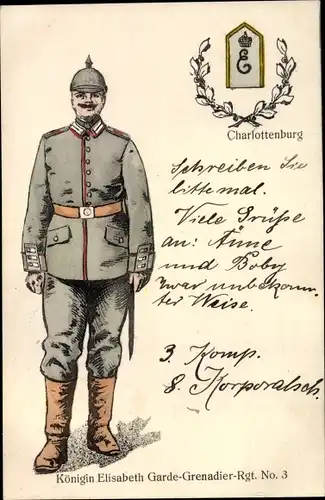 E
Charlottenburg
Schreiben Sie
bitte mal.
Viele Grüße
an: Änne
und Boby
zwar unbekann-
ter Weise.
3 Komp.
8. Korporalsch.
Königin Elisabeth Garde-Grenadier-Rgt. No. 3